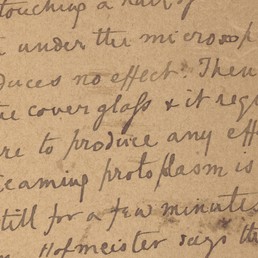 touching a hair of
under the microscop
duces no effect. Then
he cover glass & it requ
re to produce any eff
reaming protoplasm is
till for a few minutes
Hofmeister says th